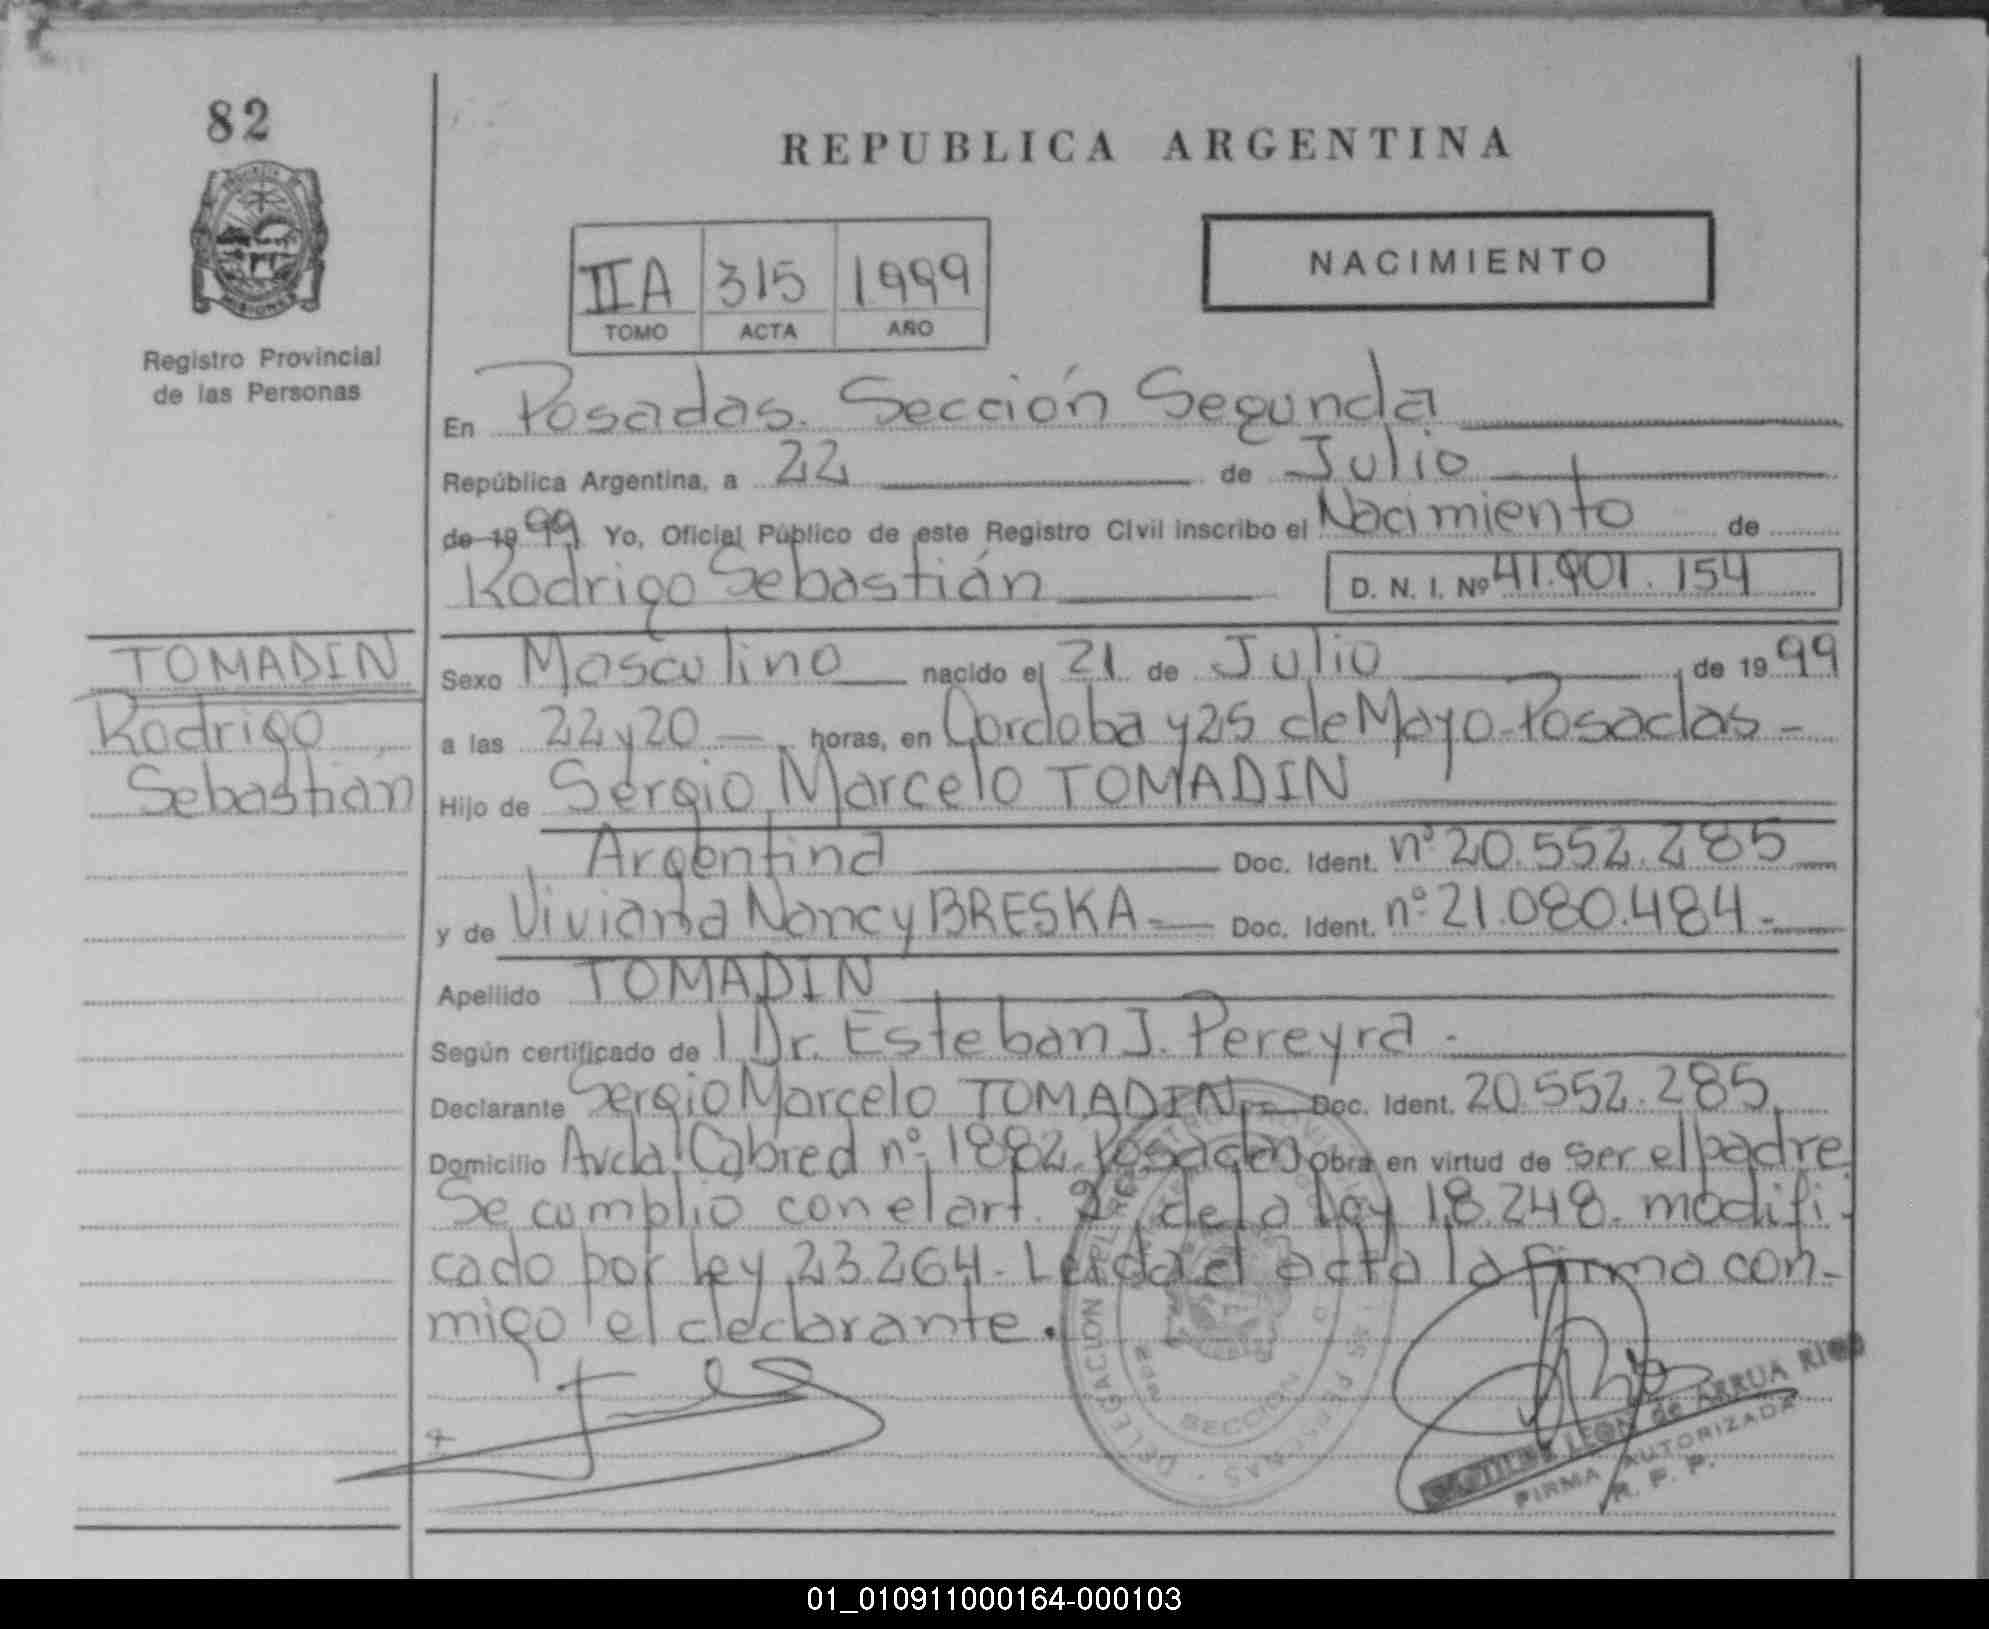 82
REPUBLICA ARGENTINA
Registro Provincial
de las Personas
IIA 315 1999
TOMO ACTA AÑO
NACIMIENTO
En Posadas. Sección Segunda
República Argentina, a 22 de Julio
de 1999 Yo, Oficial Público de este Registro Civil inscribo el Nacimiento de
Rodrigo Sebastián D. N. I. Nº 41.901.154
TOMADIN
Rodrigo
Sebastián
Sexo Masculino nacido el 21 de Julio, de 1999
a las 22 y 20 horas, en Cordoba y 25 de Mayo-Posadas-
Hijo de Sergio Marcelo TOMADIN
Argentina Doc. Ident. nº 20.552.285
y de Viviana Nancy BRESKA Doc. Ident. nº 21.080.484-
Apellido TOMADIN
Según certificado de l Dr. Esteban J. Pereyra.
Declarante Sergio Marcelo TOMADIN Doc. Ident. 20.552.285
Domicilio Avda. Cabred nº 1882. Posadas Obra en virtud de ser el padre
Se cumplio con el art. 2º de la ley 18.248. modifi-
cado por ley 23.264- Leida el acta la firma con-
migo el declarante.
DELEGACION
SECCION
LEON de ARRUA RIOS
FIRMA AUTORIZADA
R. P. P.
01_010911000164-000103